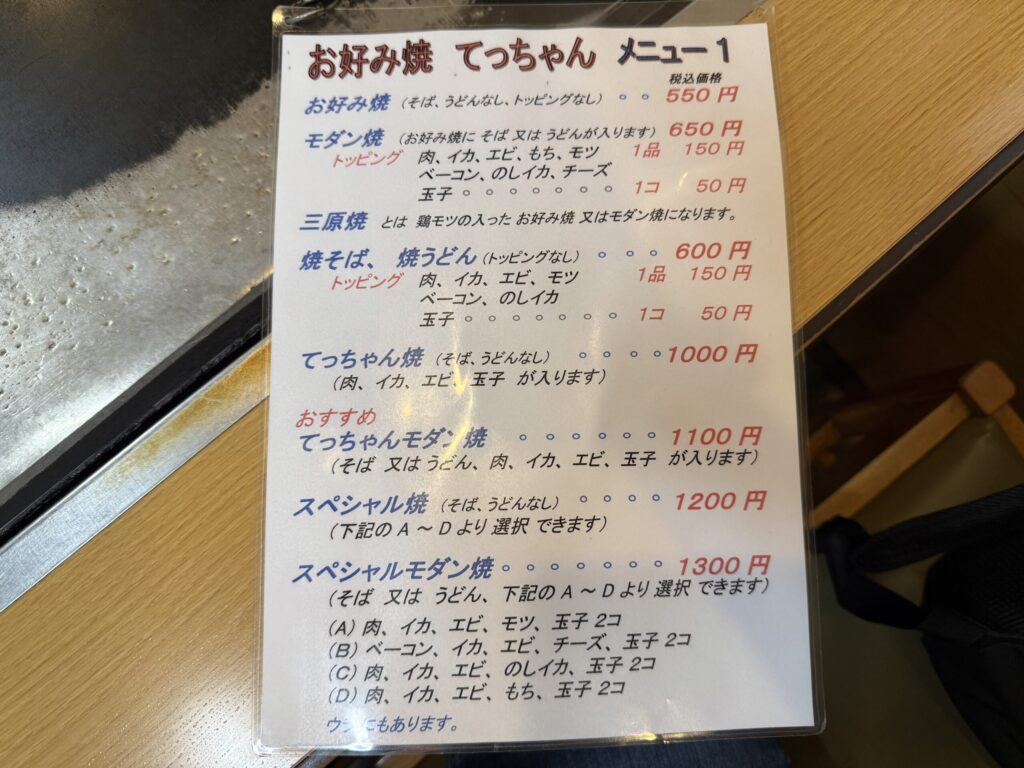 お好み焼 てっちゃん メニュー1
税込価格
お好み焼 (そば、うどんなし、トッピングなし) ° ° 550 円
モダン焼 (お好み焼に そば 又は うどんが入ります) 650 円
トッピング 肉、イカ、エビ、もち、モツ 1品 150 円
ベーコン、のしイカ、チーズ
玉子 ° ° ° ° ° ° ° 1コ 50 円
三原焼 とは 鶏モツの入った お好み焼 又はモダン焼になります。
焼そば、 焼うどん (トッピングなし) ° ° ° 600 円
トッピング 肉、イカ、エビ、モツ 1品 150 円
ベーコン、のしイカ
玉子 ° ° ° ° ° ° ° 1コ 50 円
てっちゃん焼 (そば、うどんなし) ° ° ° ° 1000 円
(肉、イカ、エビ、玉子 が入ります)
おすすめ
てっちゃんモダン焼 ° ° ° ° ° ° 1100 円
(そば 又は うどん、肉、イカ、エビ、玉子 が入ります)
スペシャル焼 (そば、うどんなし) ° ° ° ° 1200 円
(下記の A ～ D より 選択 できます)
スペシャルモダン焼 ° ° ° ° ° ° ° 1300 円
(そば 又は うどん、下記の A ～ D より 選択 できます)
(A) 肉、イカ、エビ、モツ、玉子 2コ
(B) ベーコン、イカ、エビ、チーズ、玉子 2コ
(C) 肉、イカ、エビ、のしイカ、玉子 2コ
(D) 肉、イカ、エビ、もち、玉子 2コ
ウラにもあります。